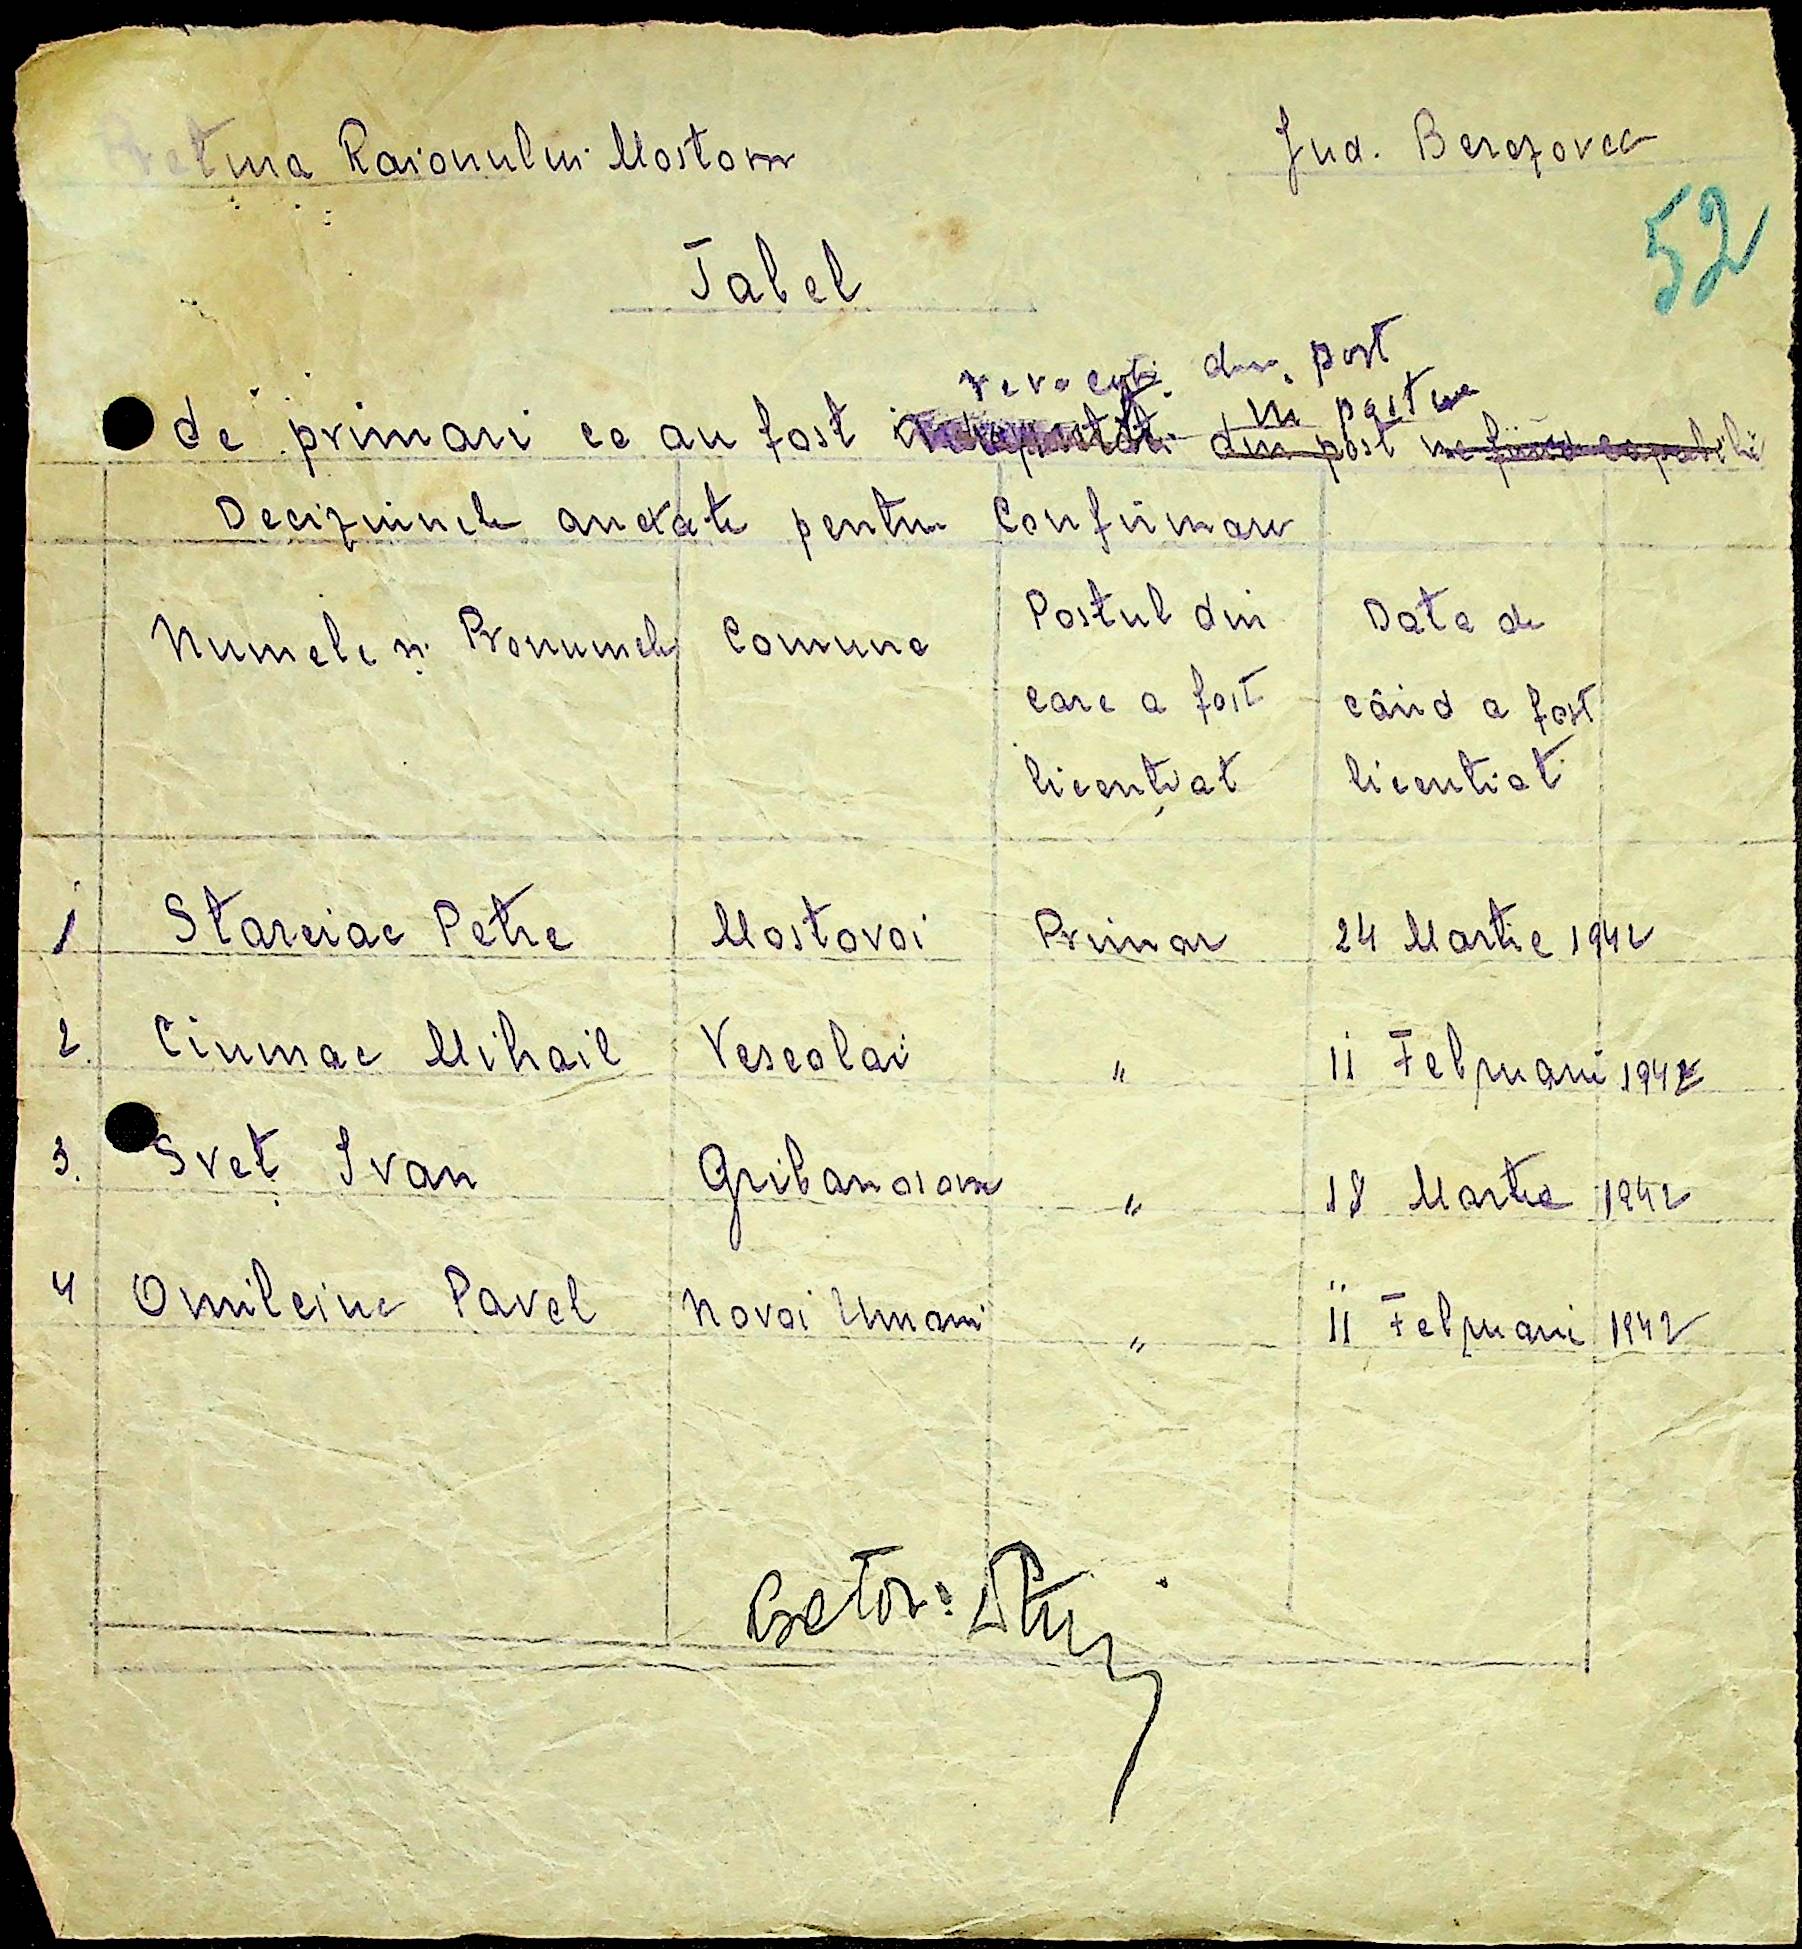 Pretura Raionului Mostovoi
Jud. Berezovca
52
Tabel
revocați din post
in post
de primari ce au fost din post ne fiind capabili
Deciziunele anexate pentru Confirmare
Numele și Pronumele Comuna Postul din care a fost licențiat Data de când a fost licentiat
1 Starciac Petre Mostovoi Primar 24 Martie 1942
2. Ciumac Mihail Veseolai " 11 Februarie 1942
3. Sveț Ivan Gribanosova " 18 Martie 1942
4 Omilciuc Pavel Novai Umani " 11 Februarie 1942
Pretor: